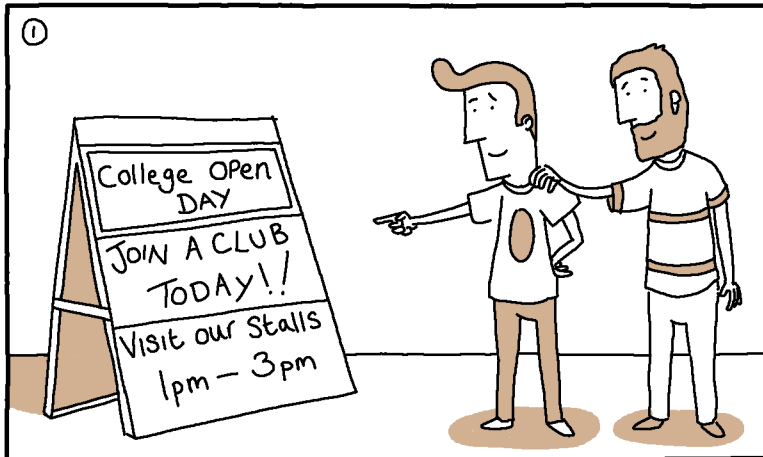 ①
College Open
DAY
JOIN A CLUB
TODAY!!
Visit our Stalls
1pm – 3pm